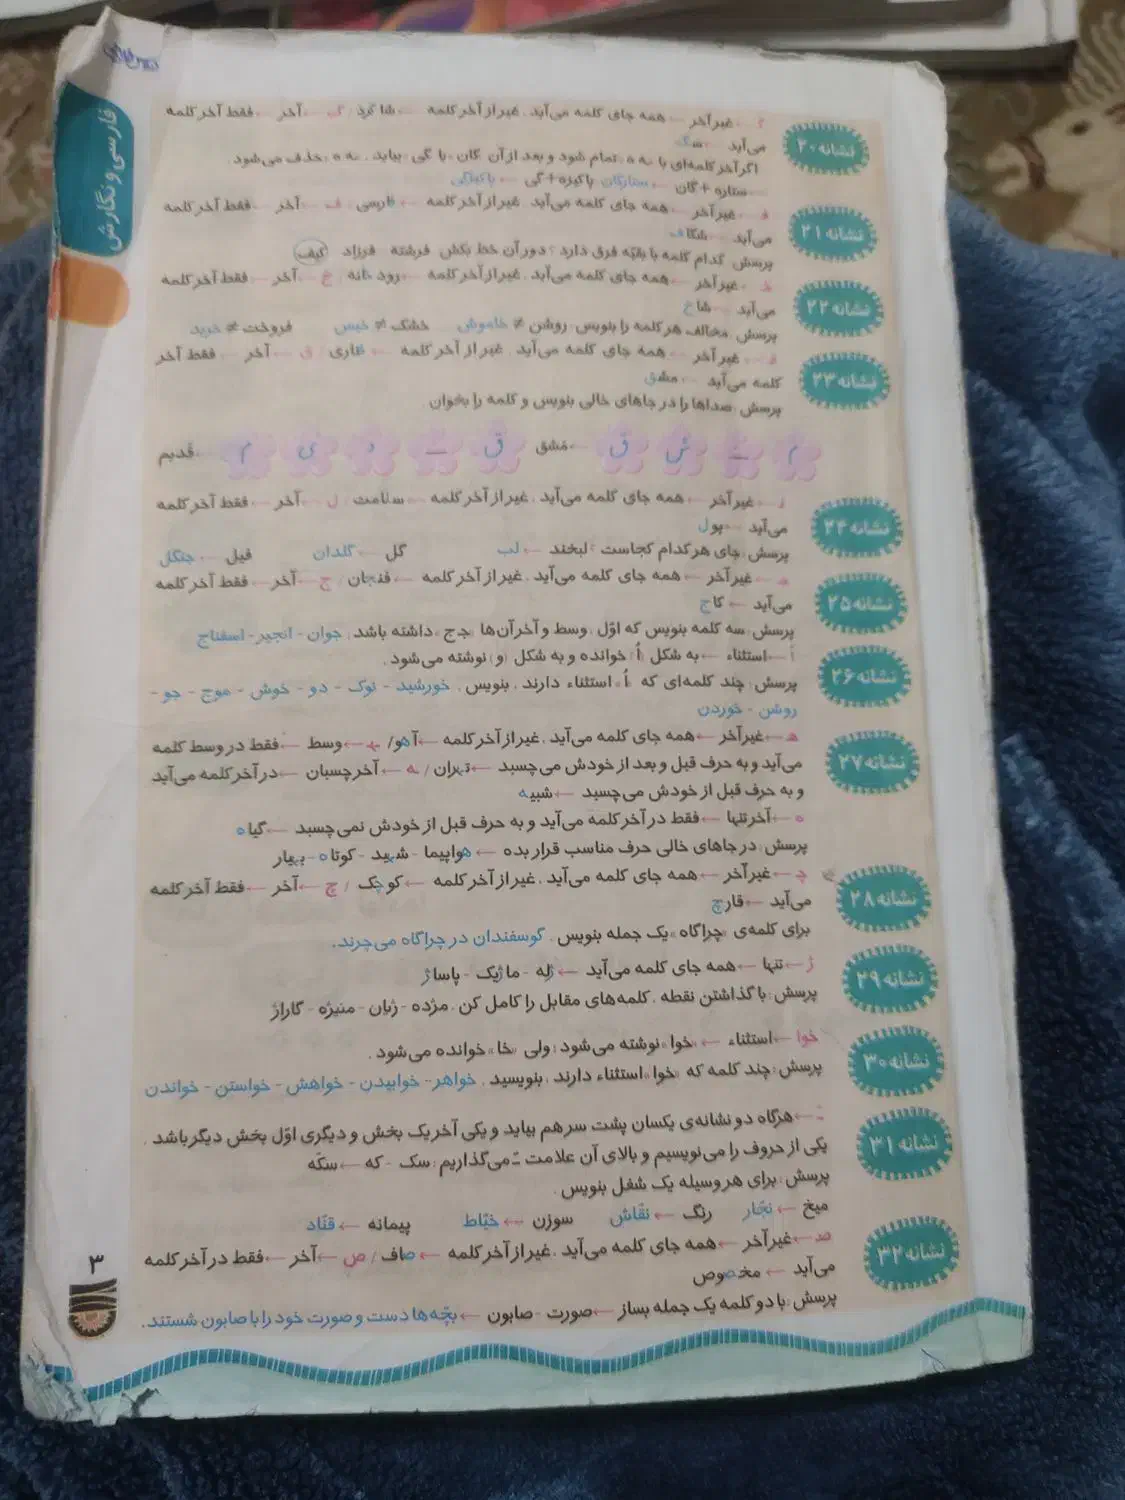 فارسی و نگارش
نشانه ۲۰
گ ← غیر آخر ← همه جای کلمه می‌آید . غیر از آخر کلمه ← شاگرد / گ ← آخر ← فقط آخر کلمه
می‌آید ← سگ
اگر آخر کلمه‌ای با «ـه ه» تمام شود و بعد از آن «گان» یا «گی» بیاید، «ـه ه» حذف می‌شود.
ستاره + گان ← ستارگان پاکیزه + گی ← پاکیزگی
نشانه ۲۱
فـ ← غیر آخر ← همه جای کلمه می‌آید . غیر از آخر کلمه ← فارسی / ف ← آخر ← فقط آخر کلمه
می‌آید ← شکاف
پرسش: کدام کلمه با بقیّه فرق دارد؟ دور آن خط بکش. فرشته فرزاد کیف
نشانه ۲۲
خـ ← غیر آخر ← همه جای کلمه می‌آید . غیر از آخر کلمه ← رودخانه / خ ← آخر ← فقط آخر کلمه
می‌آید ← شاخ
پرسش: مخالف هر کلمه را بنویس. روشن ≠ خاموش خشک ≠ خیس فروخت ≠ خرید
نشانه ۲۳
قـ ← غیر آخر ← همه جای کلمه می‌آید . غیر از آخر کلمه ← قاری / ق ← آخر ← فقط آخر
کلمه می‌آید ← مشق
پرسش: صداها را در جاهای خالی بنویس و کلمه را بخوان.
م ـَ ش ق ← مَشق ق ـَ د ی م ← قَدیم
نشانه ۲۴
لـ ← غیر آخر ← همه جای کلمه می‌آید . غیر از آخر کلمه ← سلامت / ل ← آخر ← فقط آخر کلمه
می‌آید ← پول
پرسش: جای هر کدام کجاست؟ لبخند ← لب گل ← گلدان فیل ← جنگل
نشانه ۲۵
جـ ← غیر آخر ← همه جای کلمه می‌آید . غیر از آخر کلمه ← فنجان / ج ← آخر ← فقط آخر کلمه
می‌آید ← کاج
پرسش: سه کلمه بنویس که اوّل، وسط و آخر آن‌ها «جـ ج» داشته باشد. جوان - انجیر - اسفناج
نشانه ۲۶
اُ ← استثناء ← به شکل (اُ) خوانده و به شکل (و) نوشته می‌شود.
پرسش: چند کلمه‌ای که «اُ» استثناء دارند، بنویس. خورشید - نوک - دو - خوش - موج - جو -
روشن - خوردن
نشانه ۲۷
هـ ← غیر آخر ← همه جای کلمه می‌آید . غیر از آخر کلمه ← آهو / ـهـ ← وسط ← فقط در وسط کلمه
می‌آید و به حرف قبل و بعد از خودش می‌چسبد ← تهران / ـه ← آخر چسبان ← در آخر کلمه می‌آید
و به حرف قبل از خودش می‌چسبد ← شبیه
ه ← آخر تنها ← فقط در آخر کلمه می‌آید و به حرف قبل از خودش نمی‌چسبد ← گیاه
پرسش: در جاهای خالی حرف مناسب قرار بده ← هواپیما - شهید - کوتاه - بهیار
نشانه ۲۸
چـ ← غیر آخر ← همه جای کلمه می‌آید . غیر از آخر کلمه ← کوچک / چ ← آخر ← فقط آخر کلمه
می‌آید ← قارچ
برای کلمه‌ی «چراگاه» یک جمله بنویس. گوسفندان در چراگاه می‌چرند.
نشانه ۲۹
ژ ← تنها ← همه جای کلمه می‌آید ← ژله - ماژیک - پاساژ
پرسش: با گذاشتن نقطه، کلمه‌های مقابل را کامل کن. مژده - ژیان - منیژه - گاراژ
نشانه ۳۰
خوا ← استثناء ← «خوا» نوشته می‌شود؛ ولی «خا» خوانده می‌شود.
پرسش: چند کلمه که «خوا» استثناء دارند، بنویسید. خواهر - خوابیدن - خواهش - خواستن - خواندن
نشانه ۳۱
ـّ ← هرگاه دو نشانه‌ی یکسان پشت سر هم بیاید و یکی آخر یک بخش و دیگری اوّل بخش دیگر باشد،
یکی از حروف را می‌نویسیم و بالای آن علامت ـّ می‌گذاریم: سک - که ← سکّه
پرسش: برای هر وسیله یک شغل بنویس.
میخ ← نجّار رنگ ← نقّاش سوزن ← خیّاط پیمانه ← قنّاد
نشانه ۳۲
صـ ← غیر آخر ← همه جای کلمه می‌آید . غیر از آخر کلمه ← صاف / ص ← آخر ← فقط در آخر کلمه
می‌آید ← مخصوص
پرسش: با دو کلمه یک جمله بساز ← صورت - صابون ← بچّه‌ها دست و صورت خود را با صابون شستند.
۳